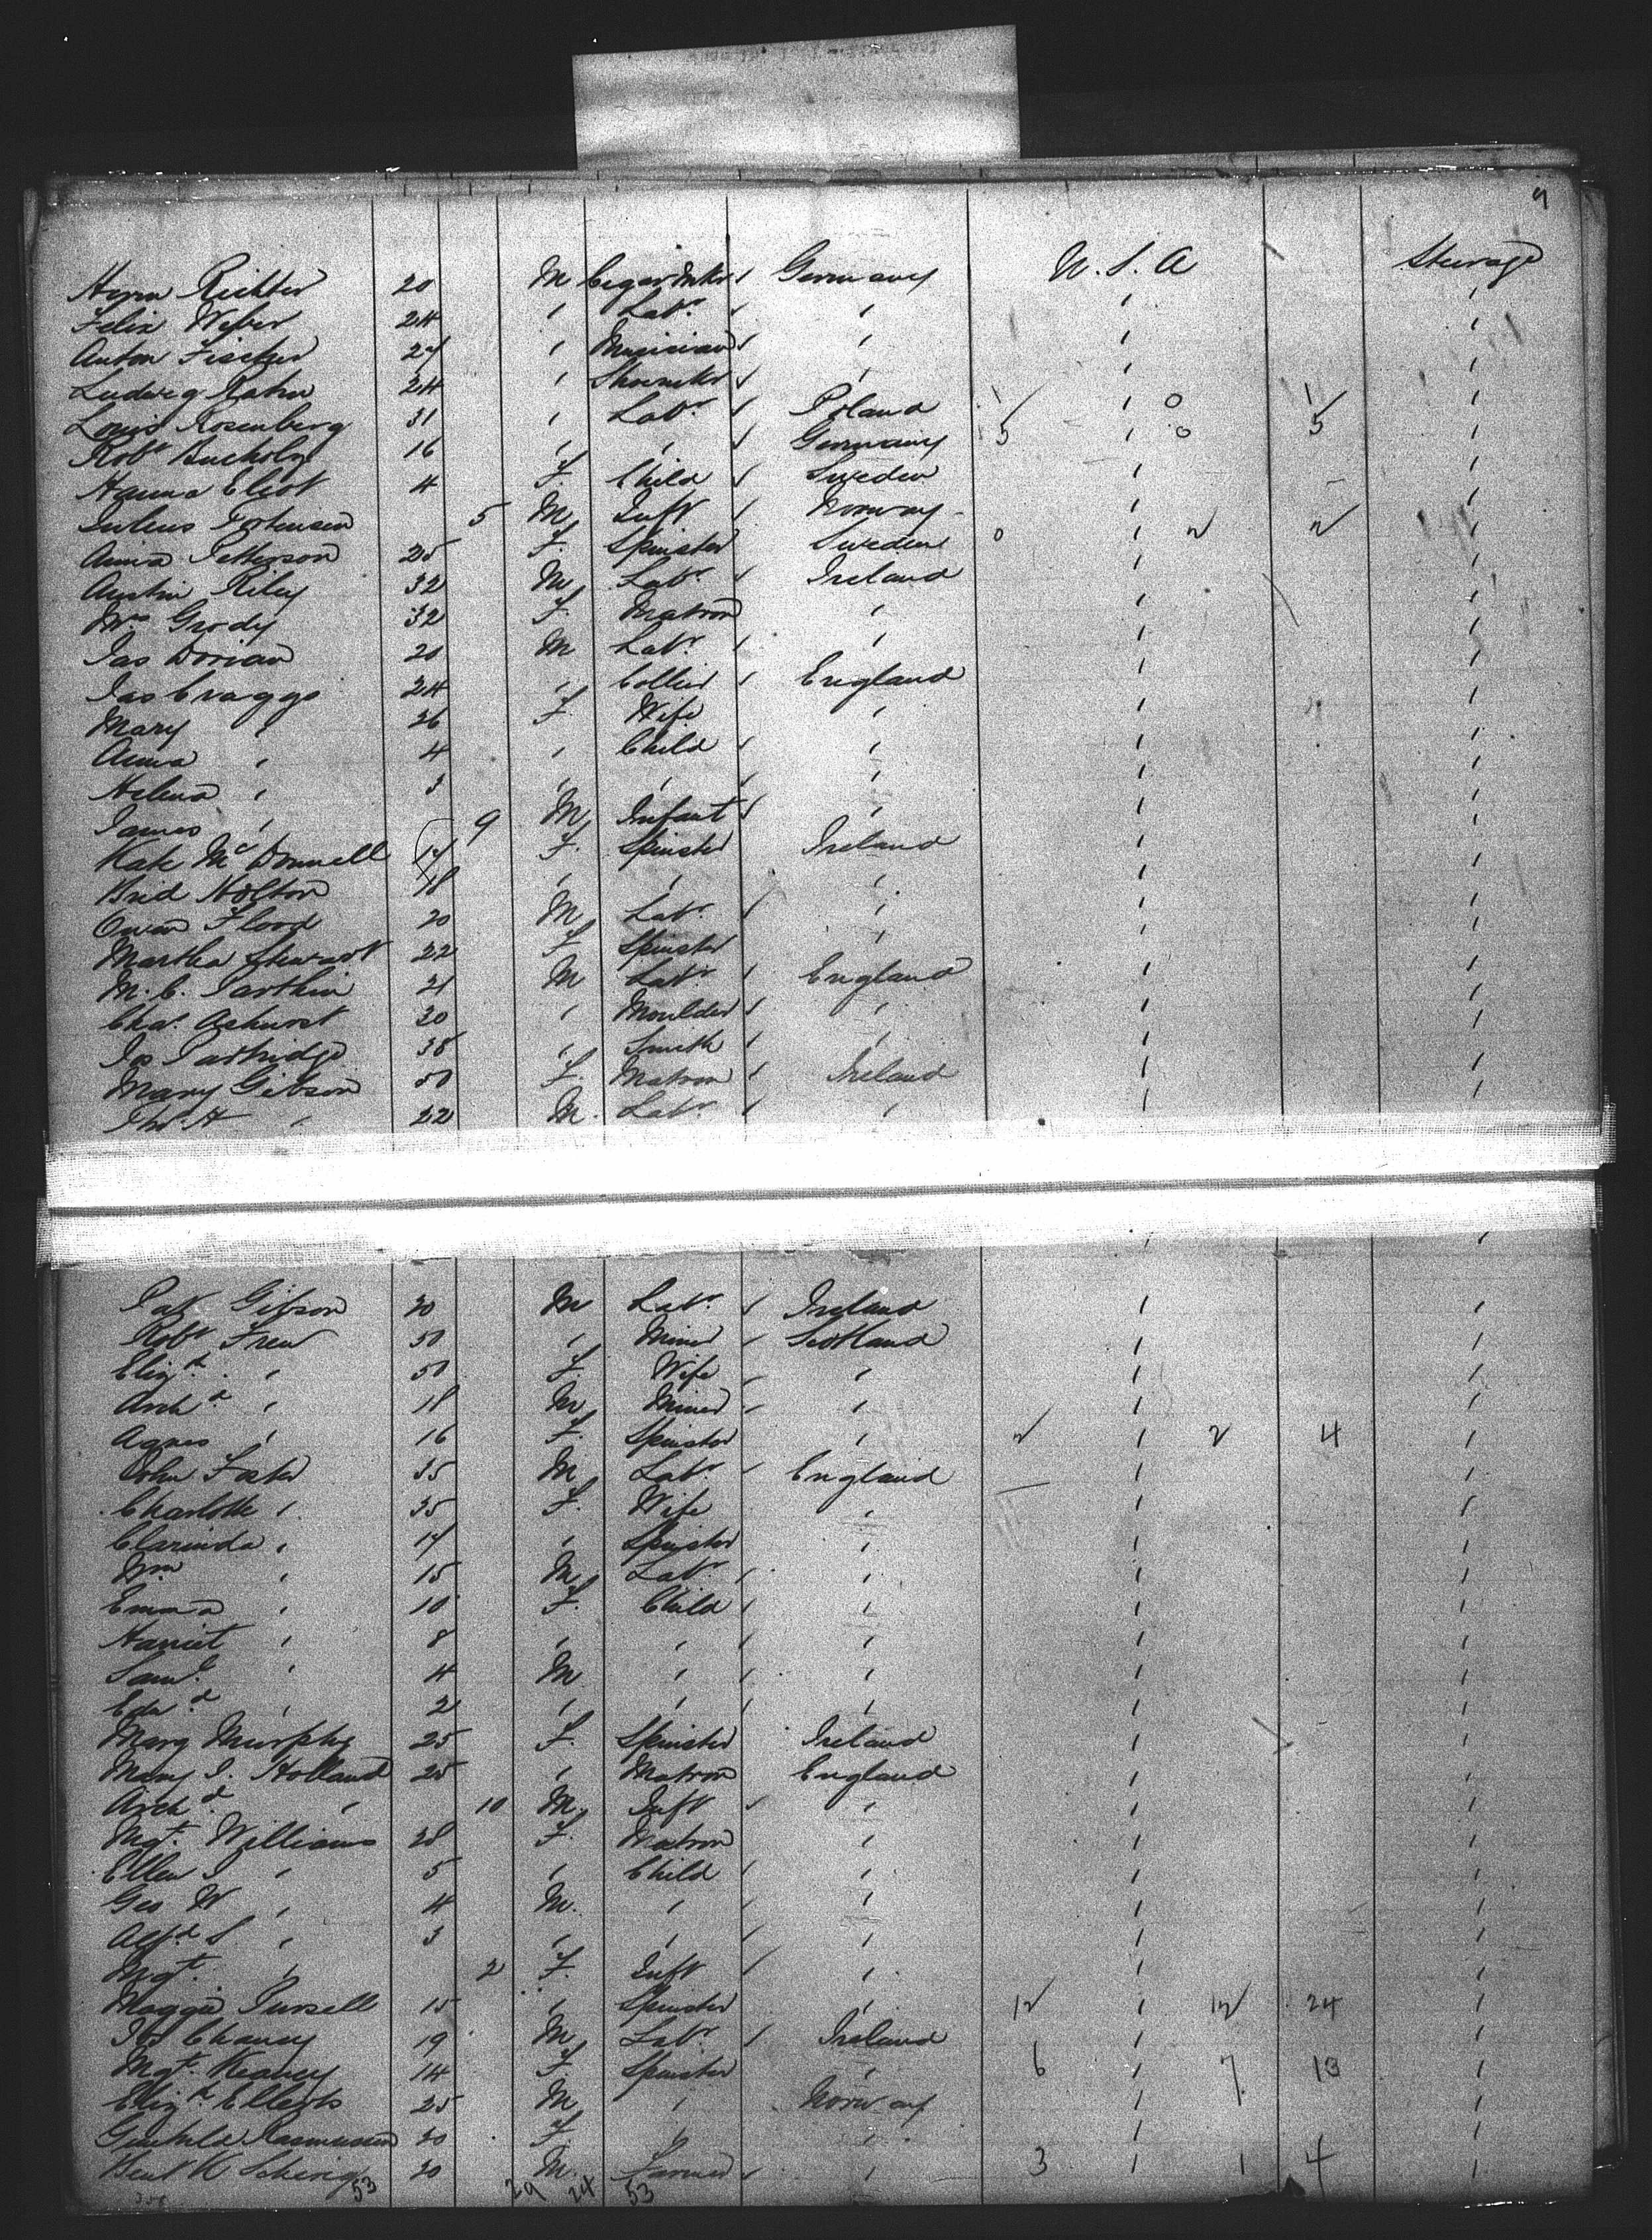 9
Herm Richter 20 M Cigar Mkr Germany U.S.A Steerage
Felix Weber 24 " Labr " " "
Anton Fischer 27 " Musician " " "
Ludwig Rahn 24 " Shoemkr " " "
Louis Rosenberg 31 " Labr Poland 1 " 0 1 "
Robt Bucholz 16 " " Germany 5 " 0 5 "
Hanna Eliot 4 F. Child Sweden " "
Julius 5 M Inft Norway " "
Anna Petterson 25 F. Spinster Sweden 0 " 2 2 "
Austin Riley 32 M Labr Ireland " "
Mrs Grody 32 F. Matron " " "
Jas Dorian 20 M Labr " " "
Jas Craggs 24 " Collier England " "
Mary " 26 F. Wife " " "
Anna " 4 " Child " " "
Helena " 3 " " " " "
James " 9 M Infant " " "
Kate McDonnell 17 F. Spinster Ireland " "
Brid Holton 18 " " " " "
Owen Flood 20 M Labr " " "
Martha Stewart 22 F Spinster " " "
M. C. 21 M Labr England " "
Chas. Ashurst 30 " Moulder " " "
Jos Partridge 38 " Smith " " "
Mary Gibson 50 F. Matron Ireland " "
Thos. H " 22 M. Labr " " "
Pat Gibson 20 M Labr Ireland " "
Robt Frew 50 " Miner Scotland " "
Elizth. " 50 F. Wife " " "
Archd " 18 M Miner " " "
Agnes " 16 F. Spinster " 2 " 2 4 "
John Foster 35 M Labr England " "
Charlotte " 35 F. Wife " " "
Clarinda " 17 " Spinster " " "
Wm " 15 M Labr " " "
Emma " 10 F. Child " " "
Harriet " 8 " " " " "
Saml. " 4 M " " " "
Edwd " 2 " " " " "
Marg Murphy 25 F. Spinster Ireland " "
Mary J. Holland 25 " Matron England " "
Archd. " 10 M. Inft " " "
Mgt. Williams 28 F. Matron " " "
Ellen J " 5 " Child " " "
Geo W " 4 M. " " " "
Alfd S " 3 " " " " "
Mgt. " 2 F. Inft " " "
Maggie Pursell 15 " Spinster " 12 " 12 24 "
Jas Chaney 19 M Labr Ireland " "
Mgt. Keaney 14 F. Spinster " 6 " 7 13 "
Elizth. Ellerts 25 M " Norway " "
Gunhild Rasmussen 20 F. " " " "
Bent K 20 M. Farmer " 3 " 1 4 "
53 29 24 53